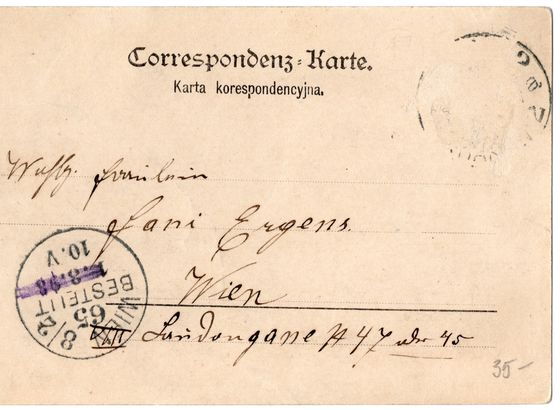 Correspondenz-Karte.
Karta korespondencyjna.
Wohlg. Fräulein
Jani Ergens.
Wien
Laudongasse № 47 oder 45
WIEN 8/2
65
BESTELLT
1.3.98
10.V
35-